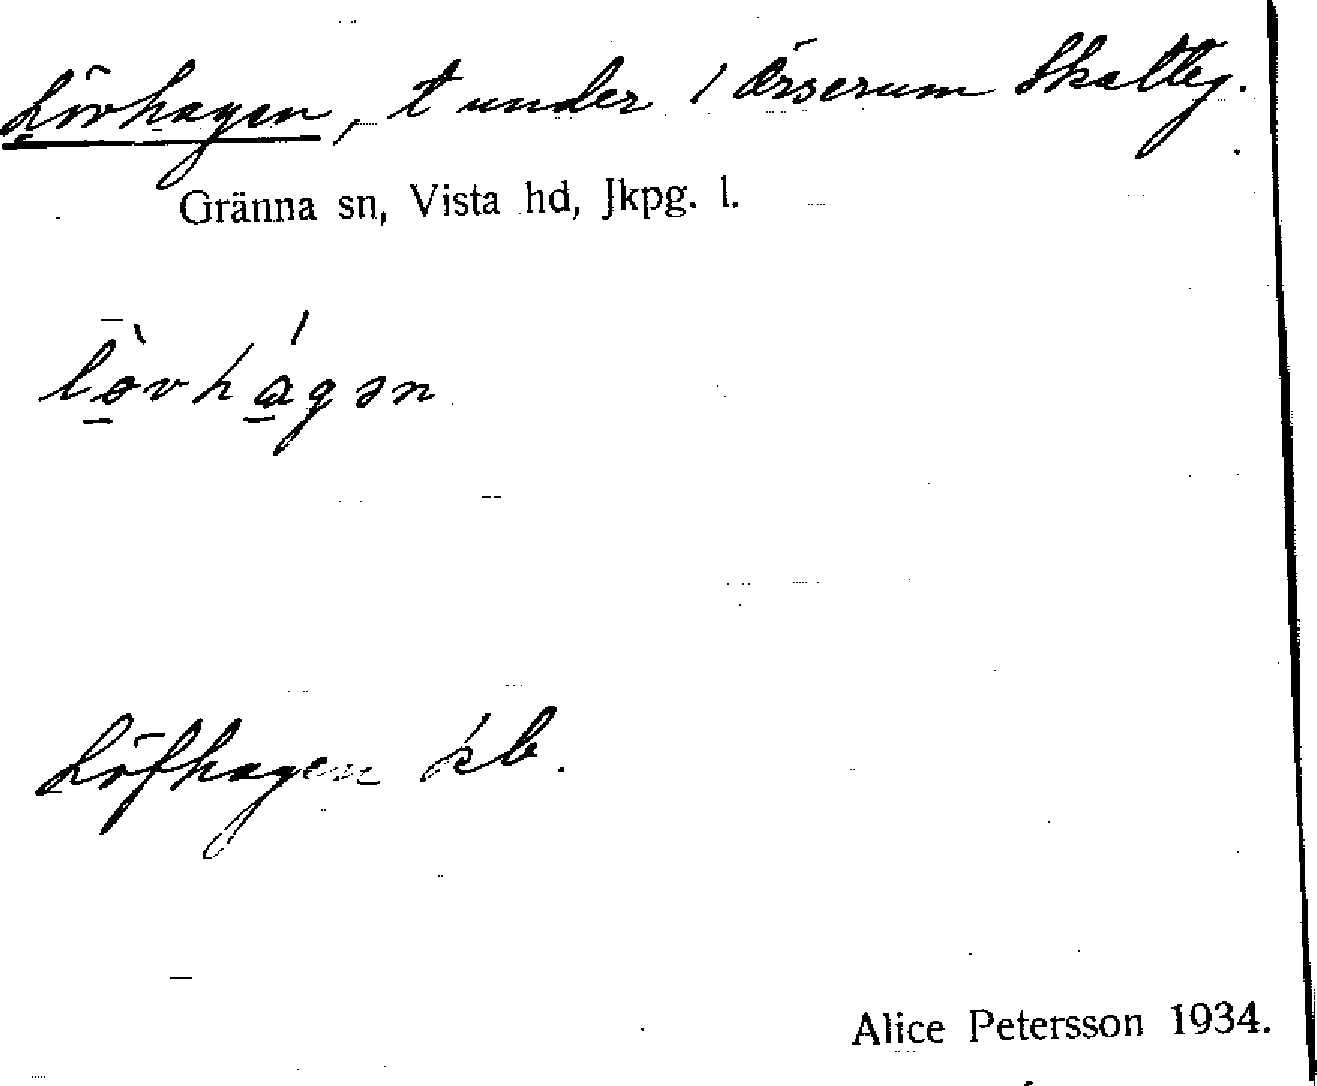 Lövhagen, t under 1 Örserum Skatteg.
Gränna sn, Vista hd, Jkpg. l.
lö̀vhágən
Löfhagen kb.
Alice Petersson 1934.